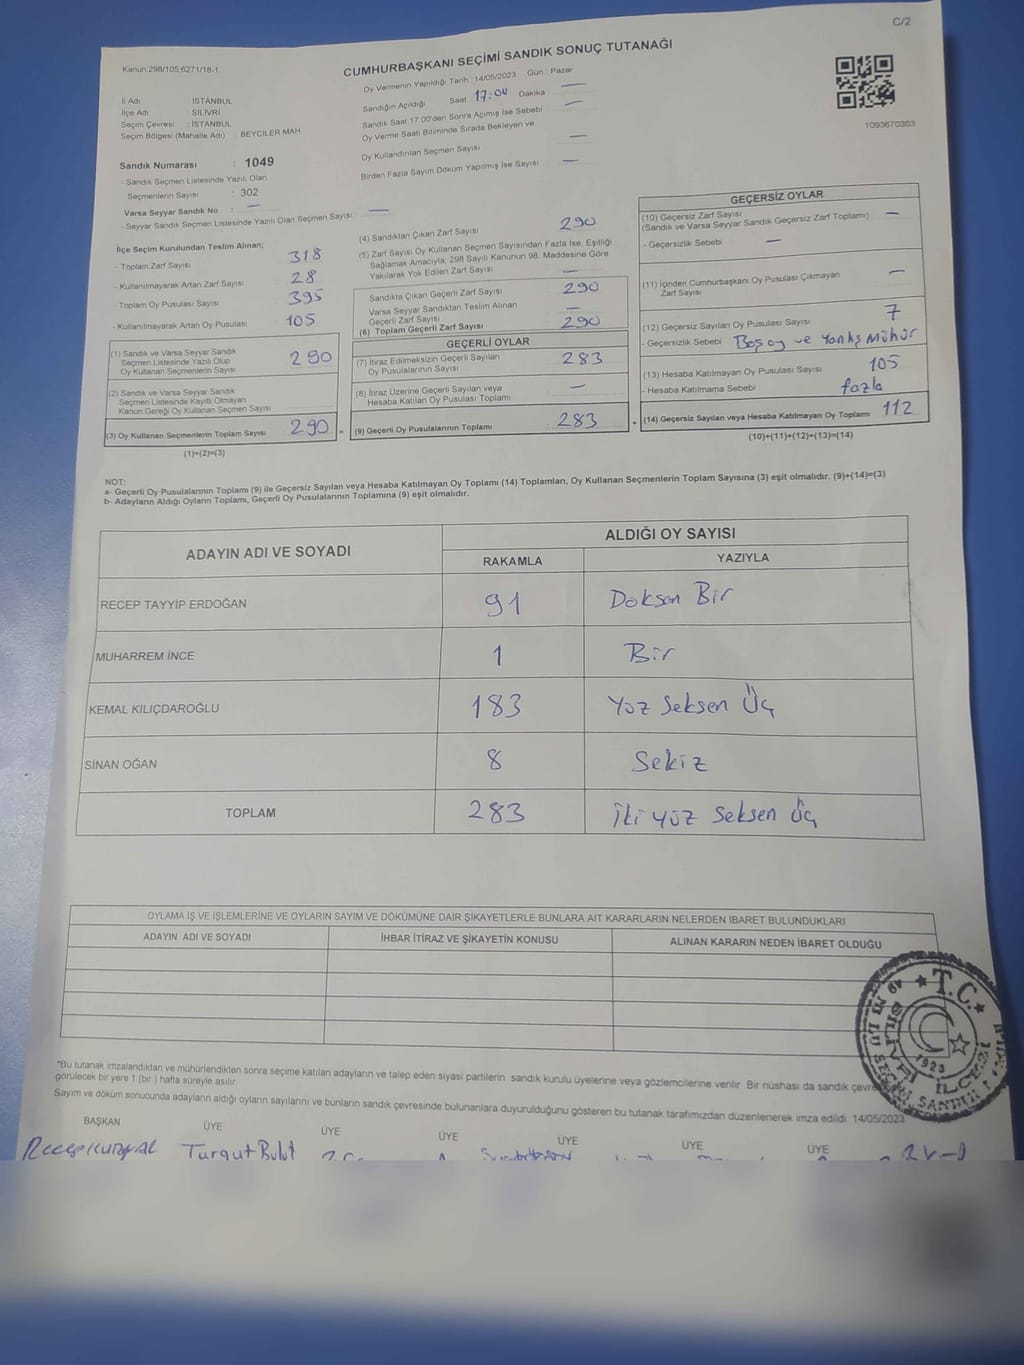 C/2
Kanun 298/105,6271/18-1
CUMHURBAŞKANI SEÇİMİ SANDIK SONUÇ TUTANAĞI
Oy Vermenin Yapıldığı Tarih :14/05/2023 Gün : Pazar
İl Adı : İSTANBUL
İlçe Adı : SİLİVRİ
Seçim Çevresi : İSTANBUL
Seçim Bölgesi (Mahalle Adı) : BEYCİLER MAH
Sandığın Açıldığı Saat 17:00 Dakika —
Sandık Saat 17:00'den Sonra Açımış İse Sebebi —
Oy Verme Saati Bitiminde Sırada Bekleyen ve
Oy Kullandırılan Seçmen Sayısı —
Birden Fazla Sayım Döküm Yapılmış İse Sayısı —
1093670303
Sandık Numarası : 1049
- Sandık Seçmen Listesinde Yazılı Olan
Seçmenlerin Sayısı : 302
Varsa Seyyar Sandık No : —
- Seyyar Sandık Seçmen Listesinde Yazılı Olan Seçmen Sayısı: —
İlçe Seçim Kurulundan Teslim Alınan;
- Toplam Zarf Sayısı 318
- Kullanılmayarak Artan Zarf Sayısı 28
- Toplam Oy Pusulası Sayısı 395
- Kullanılmayarak Artan Oy Pusulası 105
(1) Sandık ve Varsa Seyyar Sandık
Seçmen Listesinde Yazılı Olup
Oy Kullanan Seçmenlerin Sayısı 290
(2) Sandık ve Varsa Seyyar Sandık
Seçmen Listesinde Kayıtlı Olmayan
Kanun Gereği Oy Kullanan Seçmen Sayısı
(3) Oy Kullanan Seçmenlerin Toplam Sayısı 290 =
(1)+(2)=(3)
(4) Sandıktan Çıkan Zarf Sayısı 290
(5) Zarf Sayısı Oy Kullanan Seçmen Sayısından Fazla İse, Eşitliği
Sağlamak Amacıyla, 298 Sayılı Kanunun 98. Maddesine Göre
Yakılarak Yok Edilen Zarf Sayısı —
Sandıkta Çıkan Geçerli Zarf Sayısı 290
Varsa Seyyar Sandıktan Teslim Alınan
Geçerli Zarf Sayısı —
(6) Toplam Geçerli Zarf Sayısı 290
GEÇERLİ OYLAR
(7) İtiraz Edilmeksizin Geçerli Sayılan
Oy Pusulalarının Sayısı 283
(8) İtiraz Üzerine Geçerli Sayılan veya
Hesaba Katılan Oy Pusulası Toplamı —
(9) Geçerli Oy Pusulalarının Toplamı 283 +
GEÇERSİZ OYLAR
(10) Geçersiz Zarf Sayısı
(Sandık ve Varsa Seyyar Sandık Geçersiz Zarf Toplamı) —
- Geçersizlik Sebebi —
(11) İçinden Cumhurbaşkanı Oy Pusulası Çıkmayan
Zarf Sayısı —
(12) Geçersiz Sayılan Oy Pusulası Sayısı 7
- Geçersizlik Sebebi Boş oy ve Yanlış Mühür
(13) Hesaba Katılmayan Oy Pusulası Sayısı 105
- Hesaba Katılmama Sebebi fazla
(14) Geçersiz Sayılan veya Hesaba Katılmayan Oy Toplamı 112
(10)+(11)+(12)+(13)=(14)
NOT:
a- Geçerli Oy Pusulalarının Toplamı (9) ile Geçersiz Sayılan veya Hesaba Katılmayan Oy Toplamı (14) Toplamları, Oy Kullanan Seçmenlerin Toplam Sayısına (3) eşit olmalıdır. (9)+(14)=(3)
b- Adayların Aldığı Oyların Toplamı, Geçerli Oy Pusulalarının Toplamına (9) eşit olmalıdır.
ADAYIN ADI VE SOYADI
ALDIĞI OY SAYISI
RAKAMLA YAZIYLA
RECEP TAYYİP ERDOĞAN 91 Doksan Bir
MUHARREM İNCE 1 Bir
KEMAL KILIÇDAROĞLU 183 Yüz Seksen Üç
SİNAN OĞAN 8 Sekiz
TOPLAM 283 İki yüz Seksen Üç
OYLAMA İŞ VE İŞLEMLERİNE VE OYLARIN SAYIM VE DÖKÜMÜNE DAİR ŞİKAYETLERLE BUNLARA AİT KARARLARIN NELERDEN İBARET BULUNDUKLARI
ADAYIN ADI VE SOYADI İHBAR İTİRAZ VE ŞİKAYETİN KONUSU ALINAN KARARIN NEDEN İBARET OLDUĞU
T.C.
1923
*Bu tutanak imzalandıktan ve mühürlendikten sonra seçime katılan adayların ve talep eden siyasi partilerin sandık kurulu üyelerine veya gözlemcilerine verilir. Bir nüshası da sandık
görülecek bir yere 1 (bir ) hafta süreyle asılır.
Sayım ve döküm sonucunda adayların aldığı oyların sayılarını ve bunların sandık çevresinde bulunanlara duyurulduğunu gösteren bu tutanak tarafımızdan düzenlenerek imza edildi. 14/05/2023
BAŞKAN ÜYE ÜYE ÜYE ÜYE ÜYE ÜYE
Turgut Bulut